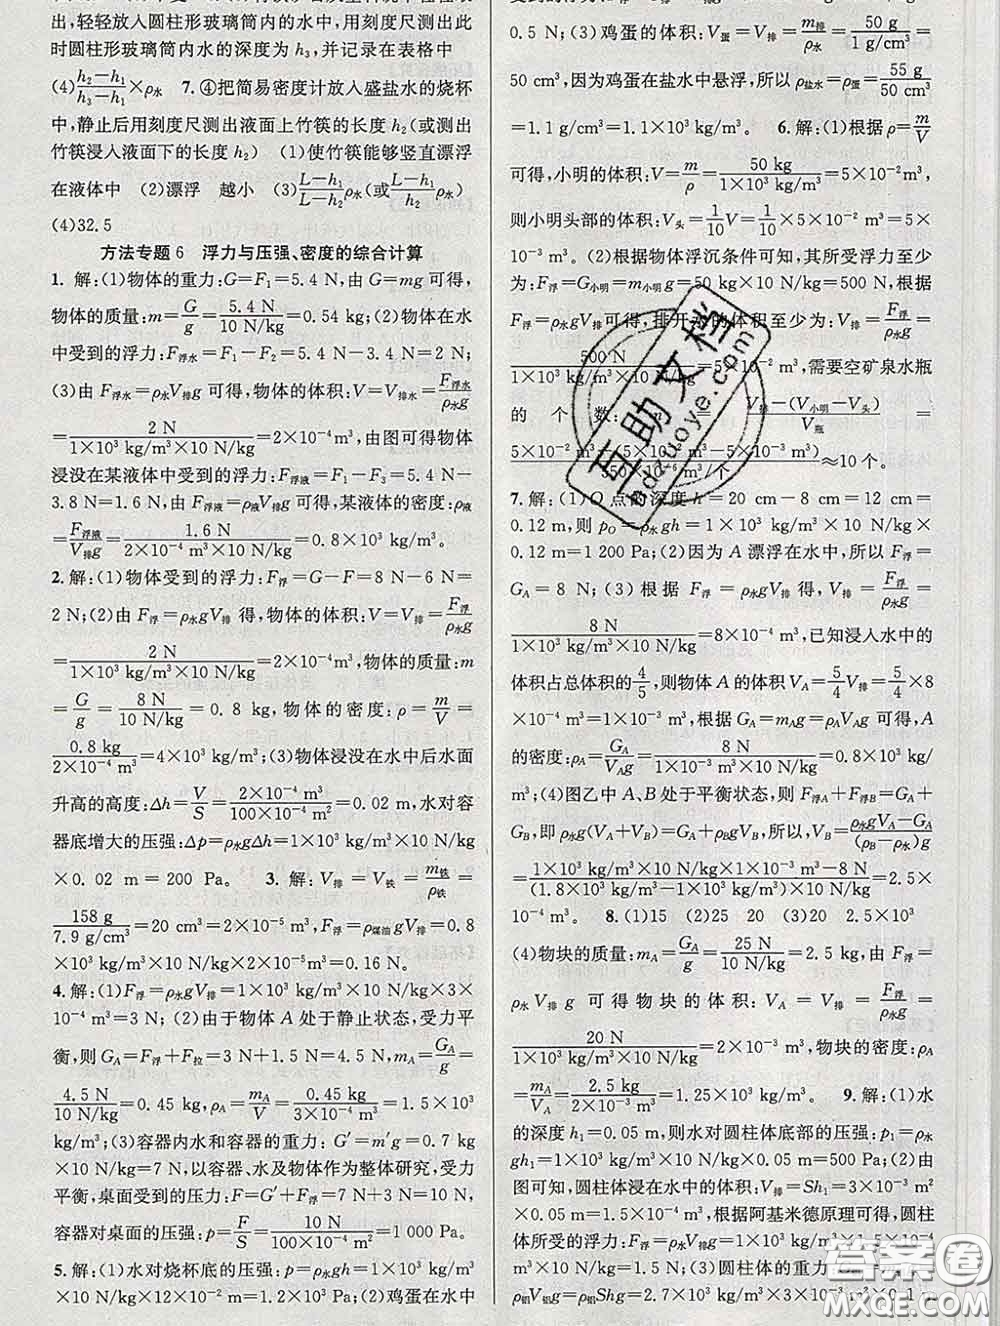 出,轻轻放入圆柱形玻璃筒内的水中,用刻度尺测出此
时圆柱形玻璃筒内水的深度为 h₃,并记录在表格中
(4)(h₂−h₁)/(h₃−h₁)×ρ水　7.④把简易密度计放入盛盐水的烧杯
中,静止后用刻度尺测出液面上竹筷的长度 h₂(或测出
竹筷浸入液面下的长度 h₂)　(1)使竹筷能够竖直漂浮
在液体中　(2)漂浮　越小　(3)(L−h₁)/(L−h₂)ρ水(或(L−h₁)/h₂ ρ水)
(4)32.5
方法专题 6　浮力与压强、密度的综合计算
1. 解:(1)物体的重力:G=F₁=5.4 N,由 G=mg 可得,
物体的质量:m=G/g=5.4 N/10 N/kg=0.54 kg;(2)物体在水
中受到的浮力:F浮水=F₁−F₂=5.4 N−3.4 N=2 N;
(3)由 F浮水=ρ水V排g 可得,物体的体积:V=V排水=F浮水/ρ水g
=2 N/1×10³ kg/m³×10 N/kg=2×10⁻⁴m³,由图可得物体
浸没在某液体中受到的浮力:F浮液=F₁−F₃=5.4 N−
3.8 N=1.6 N,由 F浮液=ρ液V排g,某液体的密度:ρ液
=F浮液/V排g=1.6 N/2×10⁻⁴ m³×10 N/kg=0.8×10³ kg/m³。
2.解:(1)物体受到的浮力:F浮=G−F=8 N−6 N=
2 N;(2)由 F浮=ρ水gV排 得,物体的体积:V=V排=F浮/ρ水g
=2 N/1×10³ kg/m³×10 N/kg=2×10⁻⁴m³,物体的质量:m
=G/g=8 N/10 N/kg=0.8 kg,物体的密度:ρ=m/V=
0.8 kg/2×10⁻⁴ m³=4×10³ kg/m³;(3)物体浸没在水中后水面
升高的高度:Δh=V/S=2×10⁻⁴ m³/100×10⁻⁴ m²=0.02 m,水对容
器底增大的压强:Δp=ρ水gΔh=1×10³ kg/m³×10 N/kg
×0.02 m=200 Pa。　3.解:V排=V铁=m铁/ρ铁=
158 g/7.9 g/cm³=20 cm³=2×10⁻⁵ m³,F浮=ρ煤油gV排=0.8
×10³kg/m³×10 N/kg×2×10⁻⁵m³=0.16 N。
4.解:(1)F浮=ρ水gV排=1×10³ kg/m³×10 N/kg×3
×10⁻⁴ m³=3 N;(2)由于物体 A 处于静止状态,受力平
衡,则 GA=F浮+F拉=3 N+1.5 N=4.5 N,mA=GA/g=
4.5 N/10 N/kg=0.45 kg,ρA=mA/V=0.45 kg/3×10⁻⁴ m³=1.5×10³
kg/m³;(3)容器内水和容器的重力:G′=m′g=0.7 kg
×10 N/kg=7 N,以容器、水及物体作为整体研究,受力
平衡,桌面受到的压力:F=G′+F浮=7 N+3 N=10 N,
容器对桌面的压强:p=F/S=10 N/100×10⁻⁴ m²=1 000 Pa。
5.解:(1)水对烧杯底的压强:p=ρ水gh=1×10³ kg/m³
×10 N/kg×12×10⁻² m=1.2×10³ Pa;(2)鸡蛋在水中
0.5 N;(3)鸡蛋的体积:V蛋=V排=m排/ρ水=50 g/1 g/cm³=
50 cm³,因为鸡蛋在盐水中悬浮,所以 ρ盐水=ρ蛋=55 g/50 cm³
=1.1 g/cm³=1.1×10³ kg/m³。　6.解:(1)根据 ρ=m/V
可得,小明的体积:V=m/ρ=50 kg/1×10³ kg/m³=5×10⁻²m³,
则小明头部的体积:V头=1/10 V=1/10×5×10⁻² m³=5×
10⁻³ m³;(2)根据物体浮沉条件可知,其所受浮力至少
为:F浮=G小明=m小明g=50 kg×10 N/kg=500 N,根据
F浮=ρ水gV排可得,排开水的体积至少为:V排=F浮/ρ水g=
500 N/1×10³ kg/m³×10 N/kg=5×10⁻² m³,需要空矿泉水瓶
的个数:n=V排−(V小明−V头)/V瓶=
5×10⁻² m³−(5×10⁻² m³−5×10⁻³ m³)/550×10⁻⁶ m³/个≈10 个。
7.解:(1)O 点的深度 h=20 cm−8 cm=12 cm=
0.12 m,则 pO=ρ水gh=1×10³ kg/m³×10 N/kg×
0.12 m=1 200 Pa;(2)因为 A 漂浮在水中,所以 F浮=
GA=8 N;(3)根据 F浮=ρ水gV排 得,V排=F浮/ρ水g=
8 N/1×10³ kg/m³×10 N/kg=8×10⁻⁴ m³,已知浸入水中的
体积占总体积的4/5,则物体 A 的体积 VA=5/4V排=5/4×8
×10⁻⁴ m³=1×10⁻³ m³,根据 GA=mAg=ρAVAg 可得,A
的密度:ρA=GA/VAg=8 N/1×10⁻³ m³×10 N/kg=0.8×10³ kg/
m³;(4)图乙中 A、B 处于平衡状态,则 F浮A+F浮B=GA+
GB,即 ρ水g(VA+VB)=GA+ρBgVB,所以,VB=ρ水gVA−GA/(ρB−ρ水)g
=1×10³ kg/m³×10 N/kg×1×10⁻³ m³−8 N/(1.8×10³ kg/m³−1×10³ kg/m³)×10 N/kg=2.5×
10⁻⁴ m³。　8.(1)15　(2)25　20　(3)20　2.5×10³
(4)物块的质量:mA=GA/g=25 N/10 N/kg=2.5 kg,由 F浮=
ρ水V排g 可得物块的体积:VA=V排=F浮/ρ水g=
20 N/1×10³ kg/m³×10 N/kg=2×10⁻³ m³,物块的密度:ρA
=mA/VA=2.5 kg/2×10⁻³ m³=1.25×10³ kg/m³。　9.解:(1)水
的深度 h₁=0.05 m,则水对圆柱体底部的压强:p₁=ρ水
gh₁=1×10³ kg/m³×10 N/kg×0.05 m=500 Pa;(2)由
图可知,圆柱体浸在水中的体积:V排=Sh₁=3×10⁻³ m²
×0.05 m=1.5×10⁻⁴ m³,根据阿基米德原理可得,圆柱
体所受的浮力:F浮=ρ水V排g=1×10³ kg/m³×1.5×
10⁻⁴ m³×10 N/kg=1.5 N;(3)圆柱体的重力
ρ铝V铝g=ρ铝Shg=2.7×10³ kg/m³×3×10⁻³ m²×0.1 m
互助文档
hdzuoye.com
答案圈
MXQE.COM